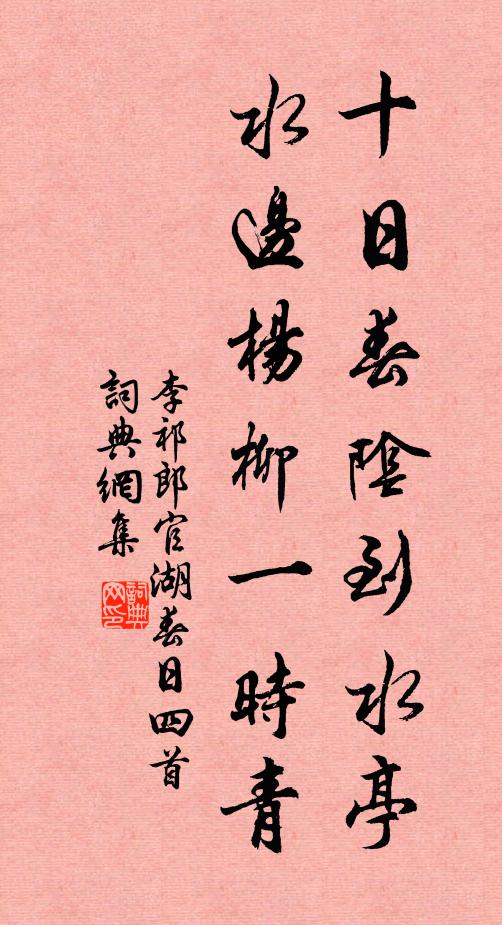 十日春陰到水亭
水邊楊柳一時青
李祁郎官湖春日四首
詞典網集
詞典
网印